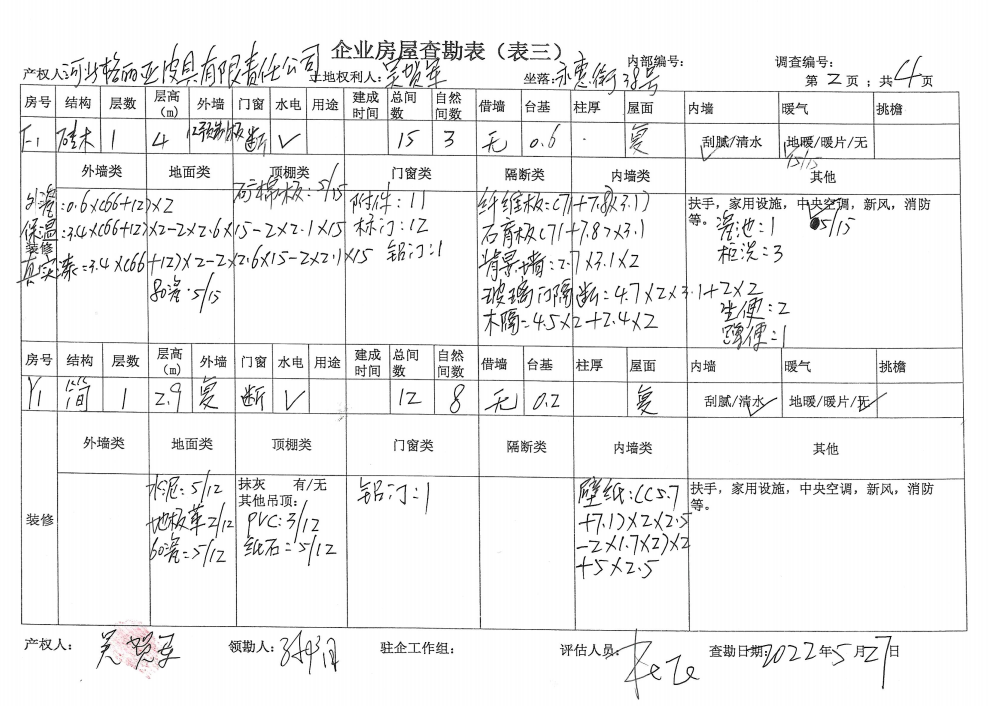 企业房屋查勘表（表三）
内部编号： 调查编号：
产权人 有限责任公司 土地权利人： 坐落：永惠街38号 第2页；共4页
房号 结构 层数 层高(m) 外墙 门窗 水电 用途 建成时间 总间数 自然间数 借墙 台基 柱厚 屋面 内墙 暖气 挑檐
砖木 1 4 断 √ 15 3 无 0.6 复 刮腻/清水 地暖/暖片/无
15/15
外墙类 地面类 顶棚类 门窗类 隔断类 内墙类 其他
石棉板：5/15 附件：11 纤维板：(71+7.8)×3.1) 扶手，家用设施，中央空调，新风，消防等。
外瓷：0.6×(66+12)×2 标门：12 石膏板(71+7.8)×3.1 5/15
保温：3.4×(66+12)×2-2×2.6×15-2×2.1×15 铝门：1 背景墙：2.7×3.1×2 池：1
装修 柜洗：3
真实漆=3.4×(66+12)×2-2×2.6×15-2×2.1×15 玻璃门隔断=4.7×2×3.1+2×2
80瓷：5/15 木隔=4.5×2+2.4×2 坐便：2
便：1
房号 结构 层数 层高(m) 外墙 门窗 水电 用途 建成时间 总间数 自然间数 借墙 台基 柱厚 屋面 内墙 暖气 挑檐
Y1 简 1 2.9 复 断 √ 12 8 无 0.2 复 刮腻/清水 地暖/暖片/无
外墙类 地面类 顶棚类 门窗类 隔断类 内墙类 其他
装修
水泥：5/12
地板革2/12
60瓷=5/12
抹灰 有/无
其他吊顶：
PVC：3/12
纸石=5/12
铝门：1
壁纸：((5.7
+7.1)×2×2.5
-2×1.7×2)×2
+5×2.5
扶手，家用设施，中央空调，新风，消防等。
产权人： 领勘人： 驻企工作组： 评估人员： 查勘日期：2022年5月27日